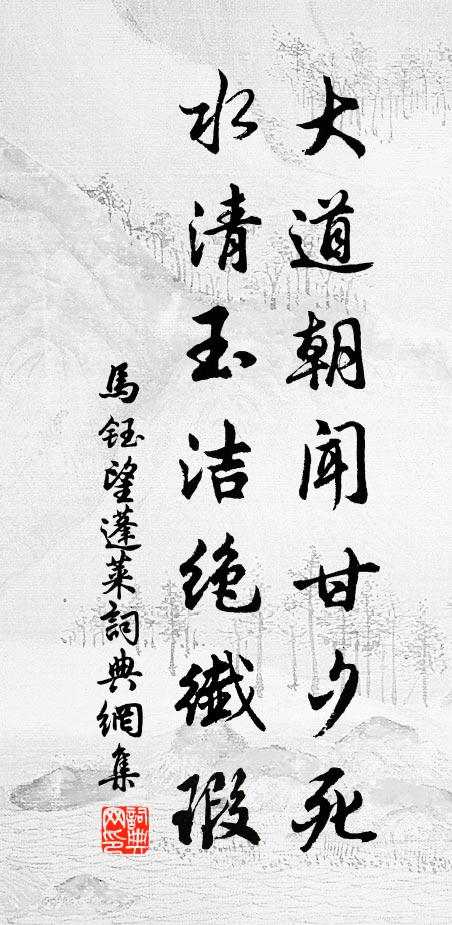 大道朝闻甘夕死
水清玉洁绝纖瑕
馬鈺望蓬萊詞典網集
詞典
网印